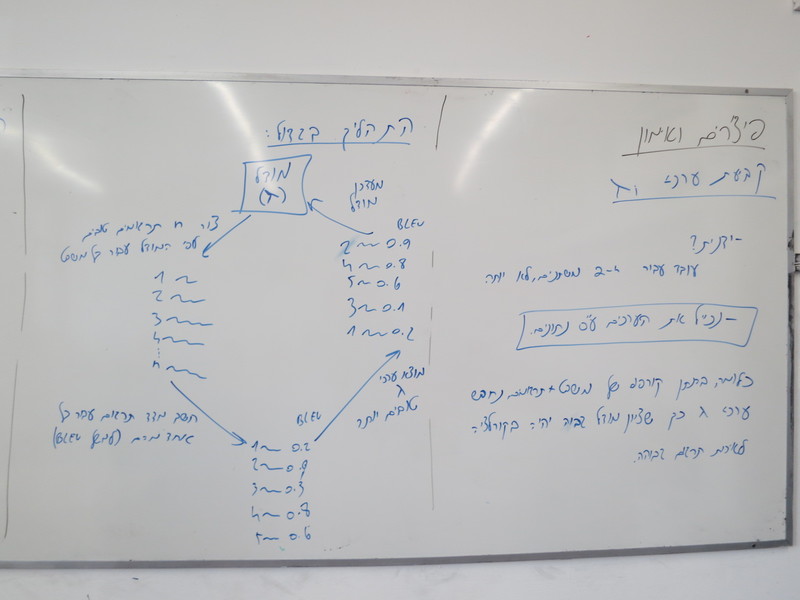 פיצ'רים ואימון
קביעת ערכי λ
- ידנית?
עובד עבור 2-4 משתנים, לא יותר
- נכייל את הערכים ע"ס נתונים.
כלומר, בהנתן קורפוס של משפט+תרגומים, נחפש
ערכי λ כך שציון מודל גבוה יהיה בקורלציה
לאיכות תרגום גבוהה.
התהליך בגדול:
מודל
(λ)
מעדכן
מודל
צור n תרגומים טובים
לפי המודל עבור כל משפט
1
2
3
4
n
חשב מדד תרגום עבור כל
אחד מהם (למשל BLEU)
BLEU
1 0.2
2 0.9
3 0.3
4 0.8
5 0.6
מוצא ערכי
λ
טובים יותר
BLEU
2 0.9
4 0.8
5 0.6
3 0.1
1 0.2